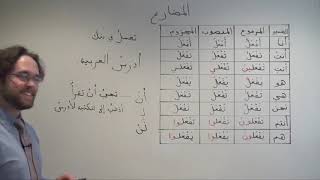 المضارع
الضمير المرفوع المنصوب المجزوم
أنا أفعلُ أفعلَ أفعلْ
أنتَ تفعلُ تفعلَ تفعلْ
أنتِ تفعلين تفعلي تفعلي
هو يفعلُ يفعلَ يفعلْ
هي تفعلُ تفعلَ تفعلْ
نحن نفعلُ نفعلَ نفعلْ
أنتم تفعلون تفعلوا تفعلوا
هم يفعلون يفعلوا يفعلوا
أدرسُ العربية
أنْ — يجب أنْ تقرأ
لِـ أذهب إلى المكتبة لأدرس
لَنْ